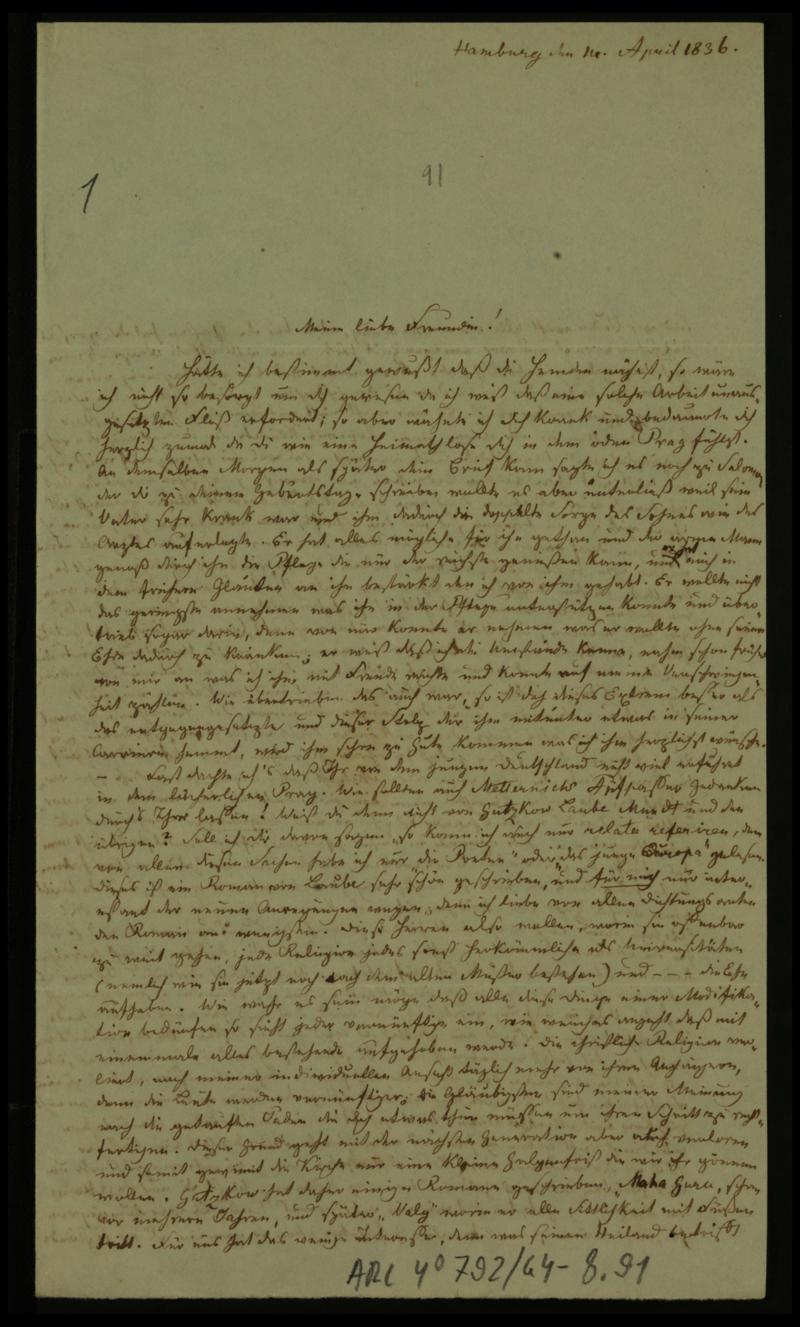 Hamburg den 10. April 1836.
91
1
Meine liebe Freundin!
Hätte ich bestimmt gewußt daß du Hemden nähest, so wäre
ich nicht so besorgt um dich gewesen da ich weiß daß eine solche Arbeit unaus-
gesetzten Fleiß erfordert; so aber wähnte ich dich krank und bedauerte dich
herzlich zumal da du wie eine Heimathlose dich in dem öden Prag fühlst.
An demselben Morgen als später dein Brief kam sagte ich es noch zu
der dir zu deinem Geburtstage schreiben wollte es aber unterließ weil sein
Vater sehr krank war und ihm dadurch die doppelte Sorge des Sohnes wie des
Arztes auferlegte. Er hat alles mögliche für ihn gethan und der arme Mann
genoß durch ihn die Pflege die nur der reichste genießen kann, und mich in
dem frühern Glauben an ihn bestärkt den ich von ihm gehabt. Er wollte nicht
das geringste annehmen was ihn in der Pflege unterstützen konnte und über-
trieb sogar darin, denn von mir konnte er nehmen was er wollte ohne seine
Ehre dadurch zu kränken; er weiß daß ich die Umstände kenne, nahm schon früher
von mir an was ich ihm mit Freude reichte und konnte auf meine Verschwiegen-
heit zählen. Wie übertrieben das auch war, so ist doch dieses Extrem besser als
das entgegengesetzte und dieser Stolz der ihm mitunter etwas in seiner
Carriere hemmt, wird ihm schon zu Gute kommen was ich ihm herzlichst wünsche.
— . Fast dachte ich's daß Ihr von dem jungen Deutschland nicht viel erfahrt
in dem lächerlichen Prag. Wie sollten auch Metternichs Aufpasser Gedanken
durch's Thor lassen! Weißt du denn nicht von Gutzkow Laube Mundt und den
übrigen? Soll ich dir davon sagen, so kann ich auch nur relata referiren, denn
von allen diesen Sachen habe ich nur die Poeten" oder "das junge Europa" gelesen.
Dieses ist ein Roman von Laube sehr schön geschrieben, und für mich nur inter-
essant der neuen Anregungen wegen, denn ich liebe von allen Dichtungsarten
den Roman am wenigsten. Diese Herren also wollen, worin sie offenbar
zu weit gehen, jede Religion jedes sonst herkömmliche als Universitäten
(nemlich wie sie jetzt noch nach dem alten Muster bestehen) und - - - die Ehe
aufheben. Wie wahr es sein möge daß alle diese Dinge einer Modifika-
tion bedürfen so sieht jeder vernünftige ein, wie angeht daß mit
einemmale alles bestehende aufgehoben werde. Die christliche Religion ver-
liert, nach meiner individuellen Ansicht täglich mehr von ihren Anhängern,
denn die Leute werden vernünftiger; die Gläubigsten sind meiner Meinung
nach die getauften Juden die doch etwas thun müssen um ihren Schritt zu recht-
fertigen. Dieser Grund geht mit der nächsten Generation aber auch verloren
und somit gewinnt die Kirche nur eine kleine Galgenfrist die wir ihr gönnen
wollen. Gutzkow hat daher einige Romane geschrieben, "Maha Guru, schon
vor mehrern Jahren, und später "Wally" worin er alle Sittlichkeit mit Füßen
tritt. Für uns hat das wenige Interesse, denn was seinen Heiland betrifft
ARC 4° 792/64 - 8.91